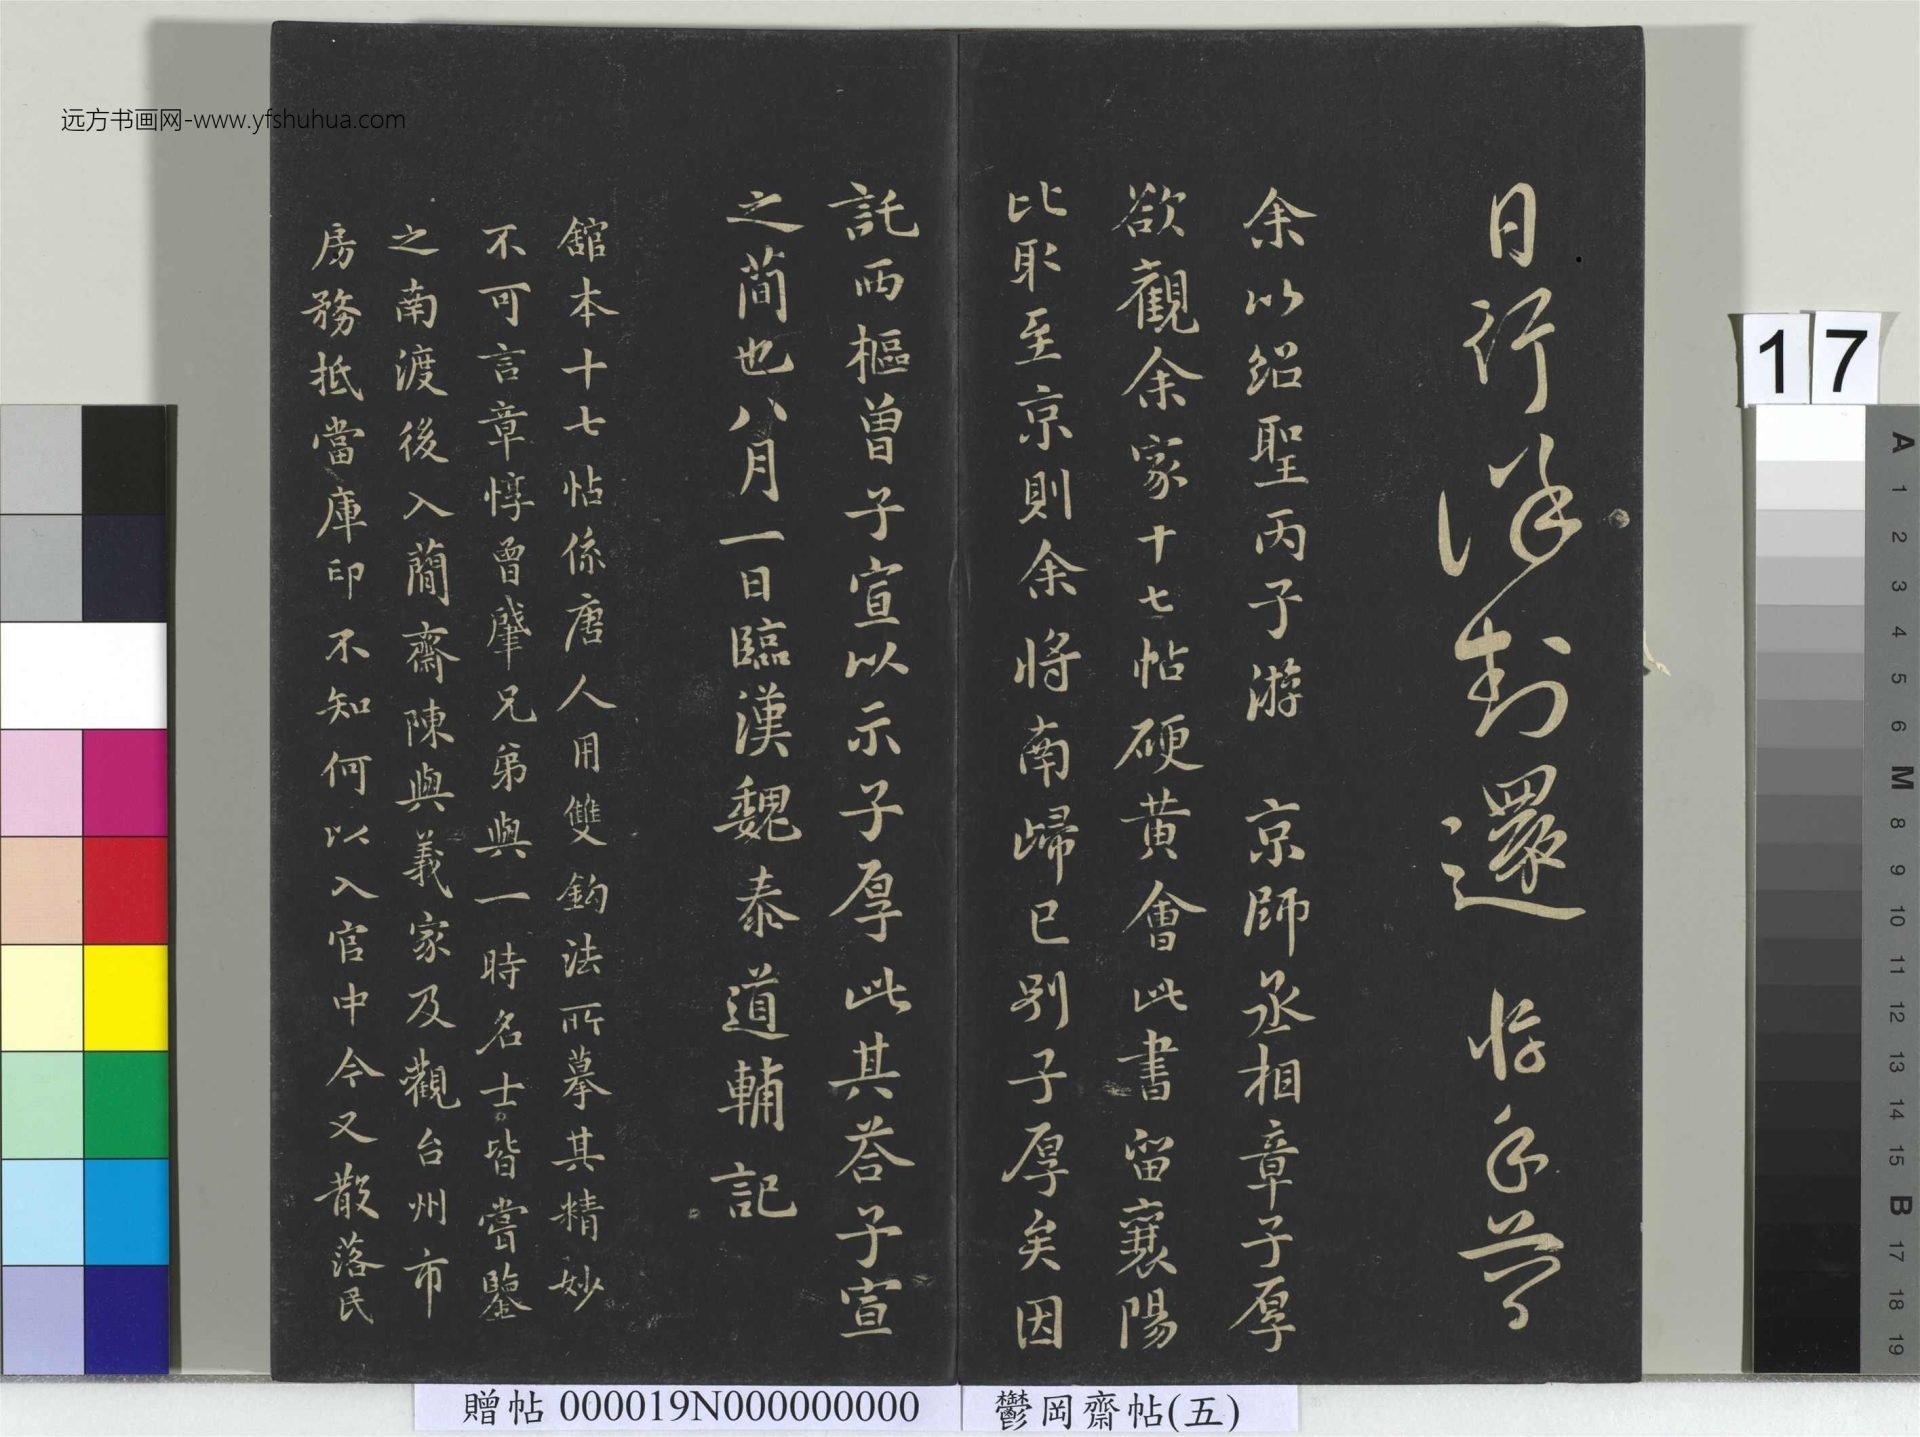 远方书画网-www.yfshuhua.com
日行
對還
余以紹聖丙子游 京師丞相章子厚
欲觀余家十七帖硬黃會此書留襄陽
比取至京則余將南歸已別子厚矣因
託西樞曾子宣以示子厚此其荅子宣
之蕳也八月一日臨漢魏泰道輔記
舘本十七帖係唐人用雙鈎法所摹其精妙
不可言章惇曾肈兄弟與一時名士皆嘗鑒
之南渡後入蕳齋陳與義家及觀台州市
房務抵當庫印不知何以入官中今又散落民
17
A 1 2 3 4 5 6 M 8 9 10 11 12 13 14 15 B 17 18 19
贈帖 000019N000000000
鬱岡齋帖(五)